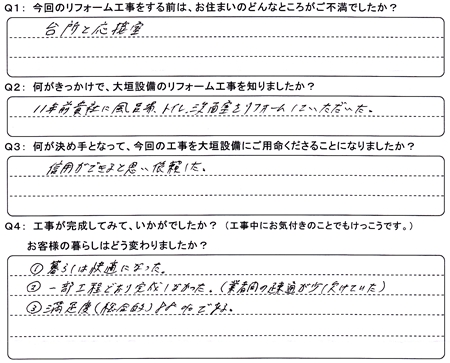 Q1: 今回のリフォーム工事をする前は、お住まいのどんなところがご不満でしたか?
台所と応接室
Q2: 何がきっかけで、大垣設備のリフォーム工事を知りましたか?
11年前貴社に風呂場、トイレ、洗面室をリフォームしていただいた。
Q3: 何が決め手となって、今回の工事を大垣設備にご用命くださることになりましたか?
信用ができると思い依頼した。
Q4: 工事が完成してみて、いかがでしたか?(工事中にお気付きのことでもけっこうです。)
お客様の暮らしはどう変わりましたか?
①暮らしは快適になった。
②一部工程どおり完成しなかった。(業者間の疎通が少し欠けていた)
③満足度(総合的)88%である。